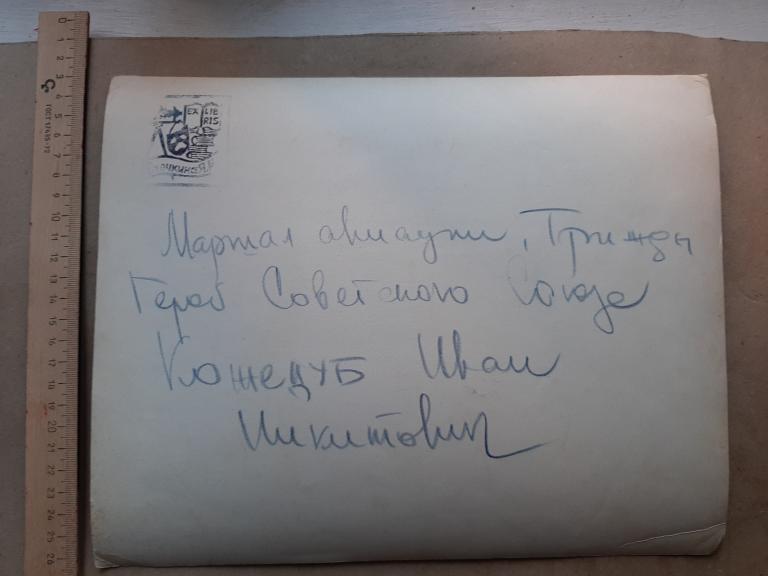 EX LIBRIS
Маршал авиации, Трижды
Герой Советского Союза
Кожедуб Иван
Никитович
ГОСТ 17435-72
0 1 2 3 4 5 6 7 8 9 10 11 12 13 14 15 16 17 18 19 20 21 22 23 24 25 26